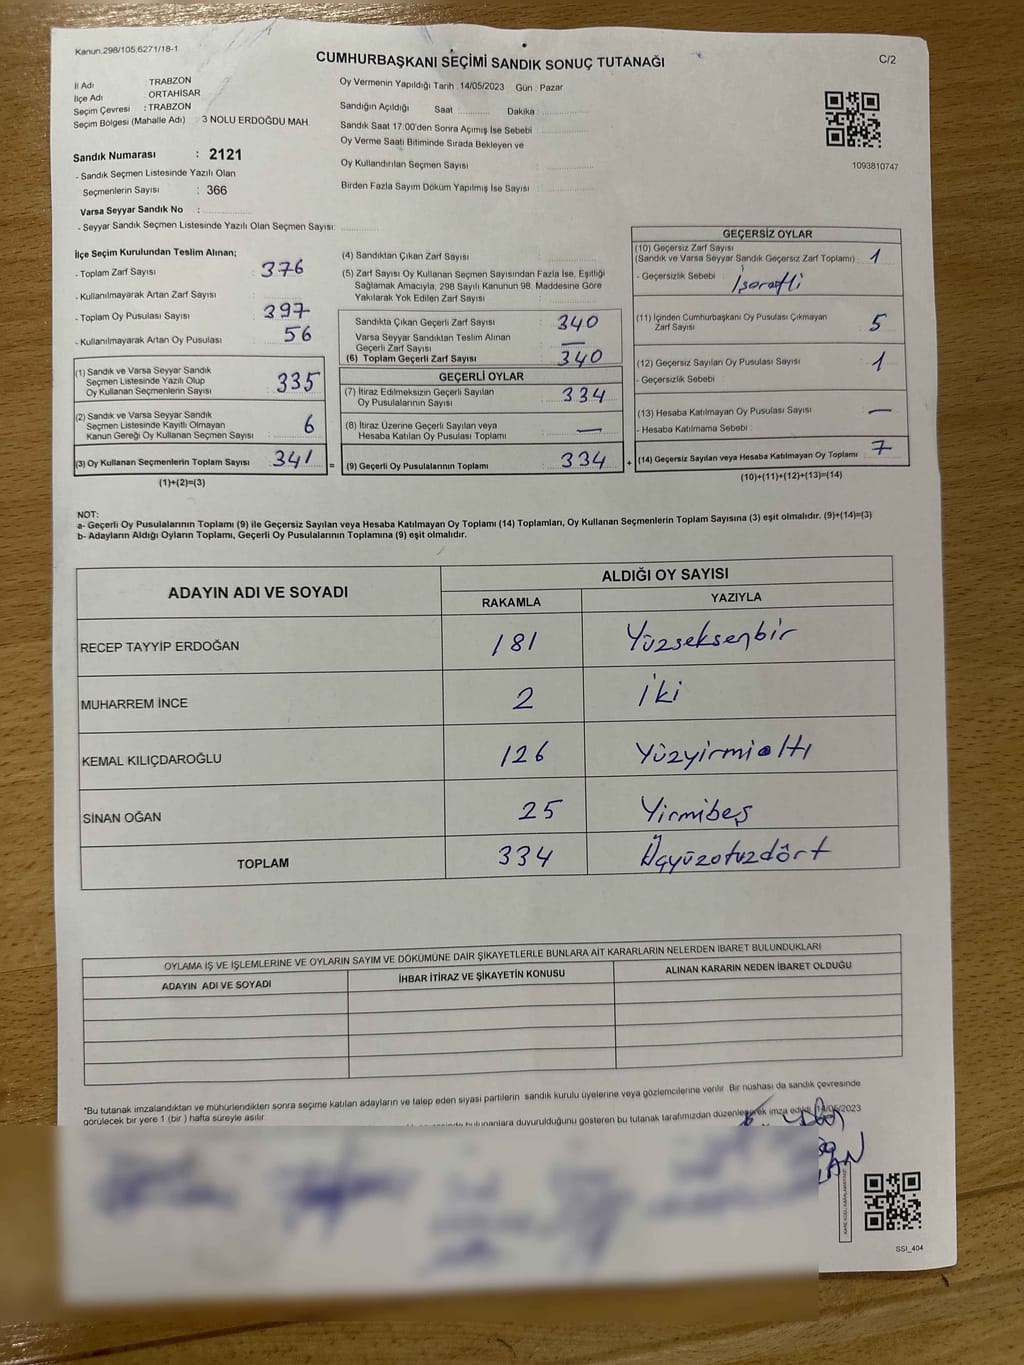 Kanun.298/105,6271/18-1
CUMHURBAŞKANI SEÇİMİ SANDIK SONUÇ TUTANAĞI
C/2
İl Adı TRABZON
İlçe Adı ORTAHİSAR
Seçim Çevresi : TRABZON
Seçim Bölgesi (Mahalle Adı) 3 NOLU ERDOĞDU MAH.
Sandık Numarası : 2121
- Sandık Seçmen Listesinde Yazılı Olan
Seçmenlerin Sayısı : 366
Varsa Seyyar Sandık No :
- Seyyar Sandık Seçmen Listesinde Yazılı Olan Seçmen Sayısı:
Oy Vermenin Yapıldığı Tarih : 14/05/2023 Gün : Pazar
Sandığın Açıldığı Saat Dakika
Sandık Saat 17:00'den Sonra Açımış İse Sebebi :
Oy Verme Saati Bitiminde Sırada Bekleyen ve
Oy Kullandırılan Seçmen Sayısı :
Birden Fazla Sayım Döküm Yapılmış İse Sayısı :
1093810747
İlçe Seçim Kurulundan Teslim Alınan;
- Toplam Zarf Sayısı : 376
- Kullanılmayarak Artan Zarf Sayısı :
- Toplam Oy Pusulası Sayısı : 397
- Kullanılmayarak Artan Oy Pusulası : 56
(1) Sandık ve Varsa Seyyar Sandık
Seçmen Listesinde Yazılı Olup
Oy Kullanan Seçmenlerin Sayısı : 335
(2) Sandık ve Varsa Seyyar Sandık
Seçmen Listesinde Kayıtlı Olmayan
Kanun Gereği Oy Kullanan Seçmen Sayısı : 6
(3) Oy Kullanan Seçmenlerin Toplam Sayısı : 341
(1)+(2)=(3)
(4) Sandıktan Çıkan Zarf Sayısı :
(5) Zarf Sayısı Oy Kullanan Seçmen Sayısından Fazla İse, Eşitliği
Sağlamak Amacıyla, 298 Sayılı Kanunun 98. Maddesine Göre
Yakılarak Yok Edilen Zarf Sayısı :
Sandıkta Çıkan Geçerli Zarf Sayısı : 340
Varsa Seyyar Sandıktan Teslim Alınan
Geçerli Zarf Sayısı : —
(6) Toplam Geçerli Zarf Sayısı : 340
GEÇERLİ OYLAR
(7) İtiraz Edilmeksizin Geçerli Sayılan
Oy Pusulalarının Sayısı : 334
(8) İtiraz Üzerine Geçerli Sayılan veya
Hesaba Katılan Oy Pusulası Toplamı : —
= (9) Geçerli Oy Pusulalarının Toplamı : 334 +
GEÇERSİZ OYLAR
(10) Geçersiz Zarf Sayısı
(Sandık ve Varsa Seyyar Sandık Geçersiz Zarf Toplamı) : 1
- Geçersizlik Sebebi : İşaretli
(11) İçinden Cumhurbaşkanı Oy Pusulası Çıkmayan
Zarf Sayısı : 5
(12) Geçersiz Sayılan Oy Pusulası Sayısı : 1
- Geçersizlik Sebebi :
(13) Hesaba Katılmayan Oy Pusulası Sayısı : —
- Hesaba Katılmama Sebebi :
(14) Geçersiz Sayılan veya Hesaba Katılmayan Oy Toplamı : 7
(10)+(11)+(12)+(13)=(14)
NOT:
a- Geçerli Oy Pusulalarının Toplamı (9) ile Geçersiz Sayılan veya Hesaba Katılmayan Oy Toplamı (14) Toplamları, Oy Kullanan Seçmenlerin Toplam Sayısına (3) eşit olmalıdır. (9)+(14)=(3)
b- Adayların Aldığı Oyların Toplamı, Geçerli Oy Pusulalarının Toplamına (9) eşit olmalıdır.
ADAYIN ADI VE SOYADI ALDIĞI OY SAYISI
RAKAMLA YAZIYLA
RECEP TAYYİP ERDOĞAN 181 Yüzseksenbir
MUHARREM İNCE 2 İki
KEMAL KILIÇDAROĞLU 126 Yüzyirmialtı
SİNAN OĞAN 25 Yirmibeş
TOPLAM 334 Üçyüzotuzdört
OYLAMA İŞ VE İŞLEMLERİNE VE OYLARIN SAYIM VE DÖKÜMÜNE DAİR ŞİKAYETLERLE BUNLARA AİT KARARLARIN NELERDEN İBARET BULUNDUKLARI
ADAYIN ADI VE SOYADI İHBAR İTİRAZ VE ŞİKAYETİN KONUSU ALINAN KARARIN NEDEN İBARET OLDUĞU
*Bu tutanak imzalandıktan ve mühürlendikten sonra seçime katılan adayların ve talep eden siyasi partilerin sandık kurulu üyelerine veya gözlemcilerine verilir. Bir nushası da sandık çevresinde
görülecek bir yere 1 (bir ) hafta süreyle asılır
bulunanlara duyurulduğunu gösteren bu tutanak tarafımızdan düzenlenerek imza edildi. 14/05/2023
SSI_404